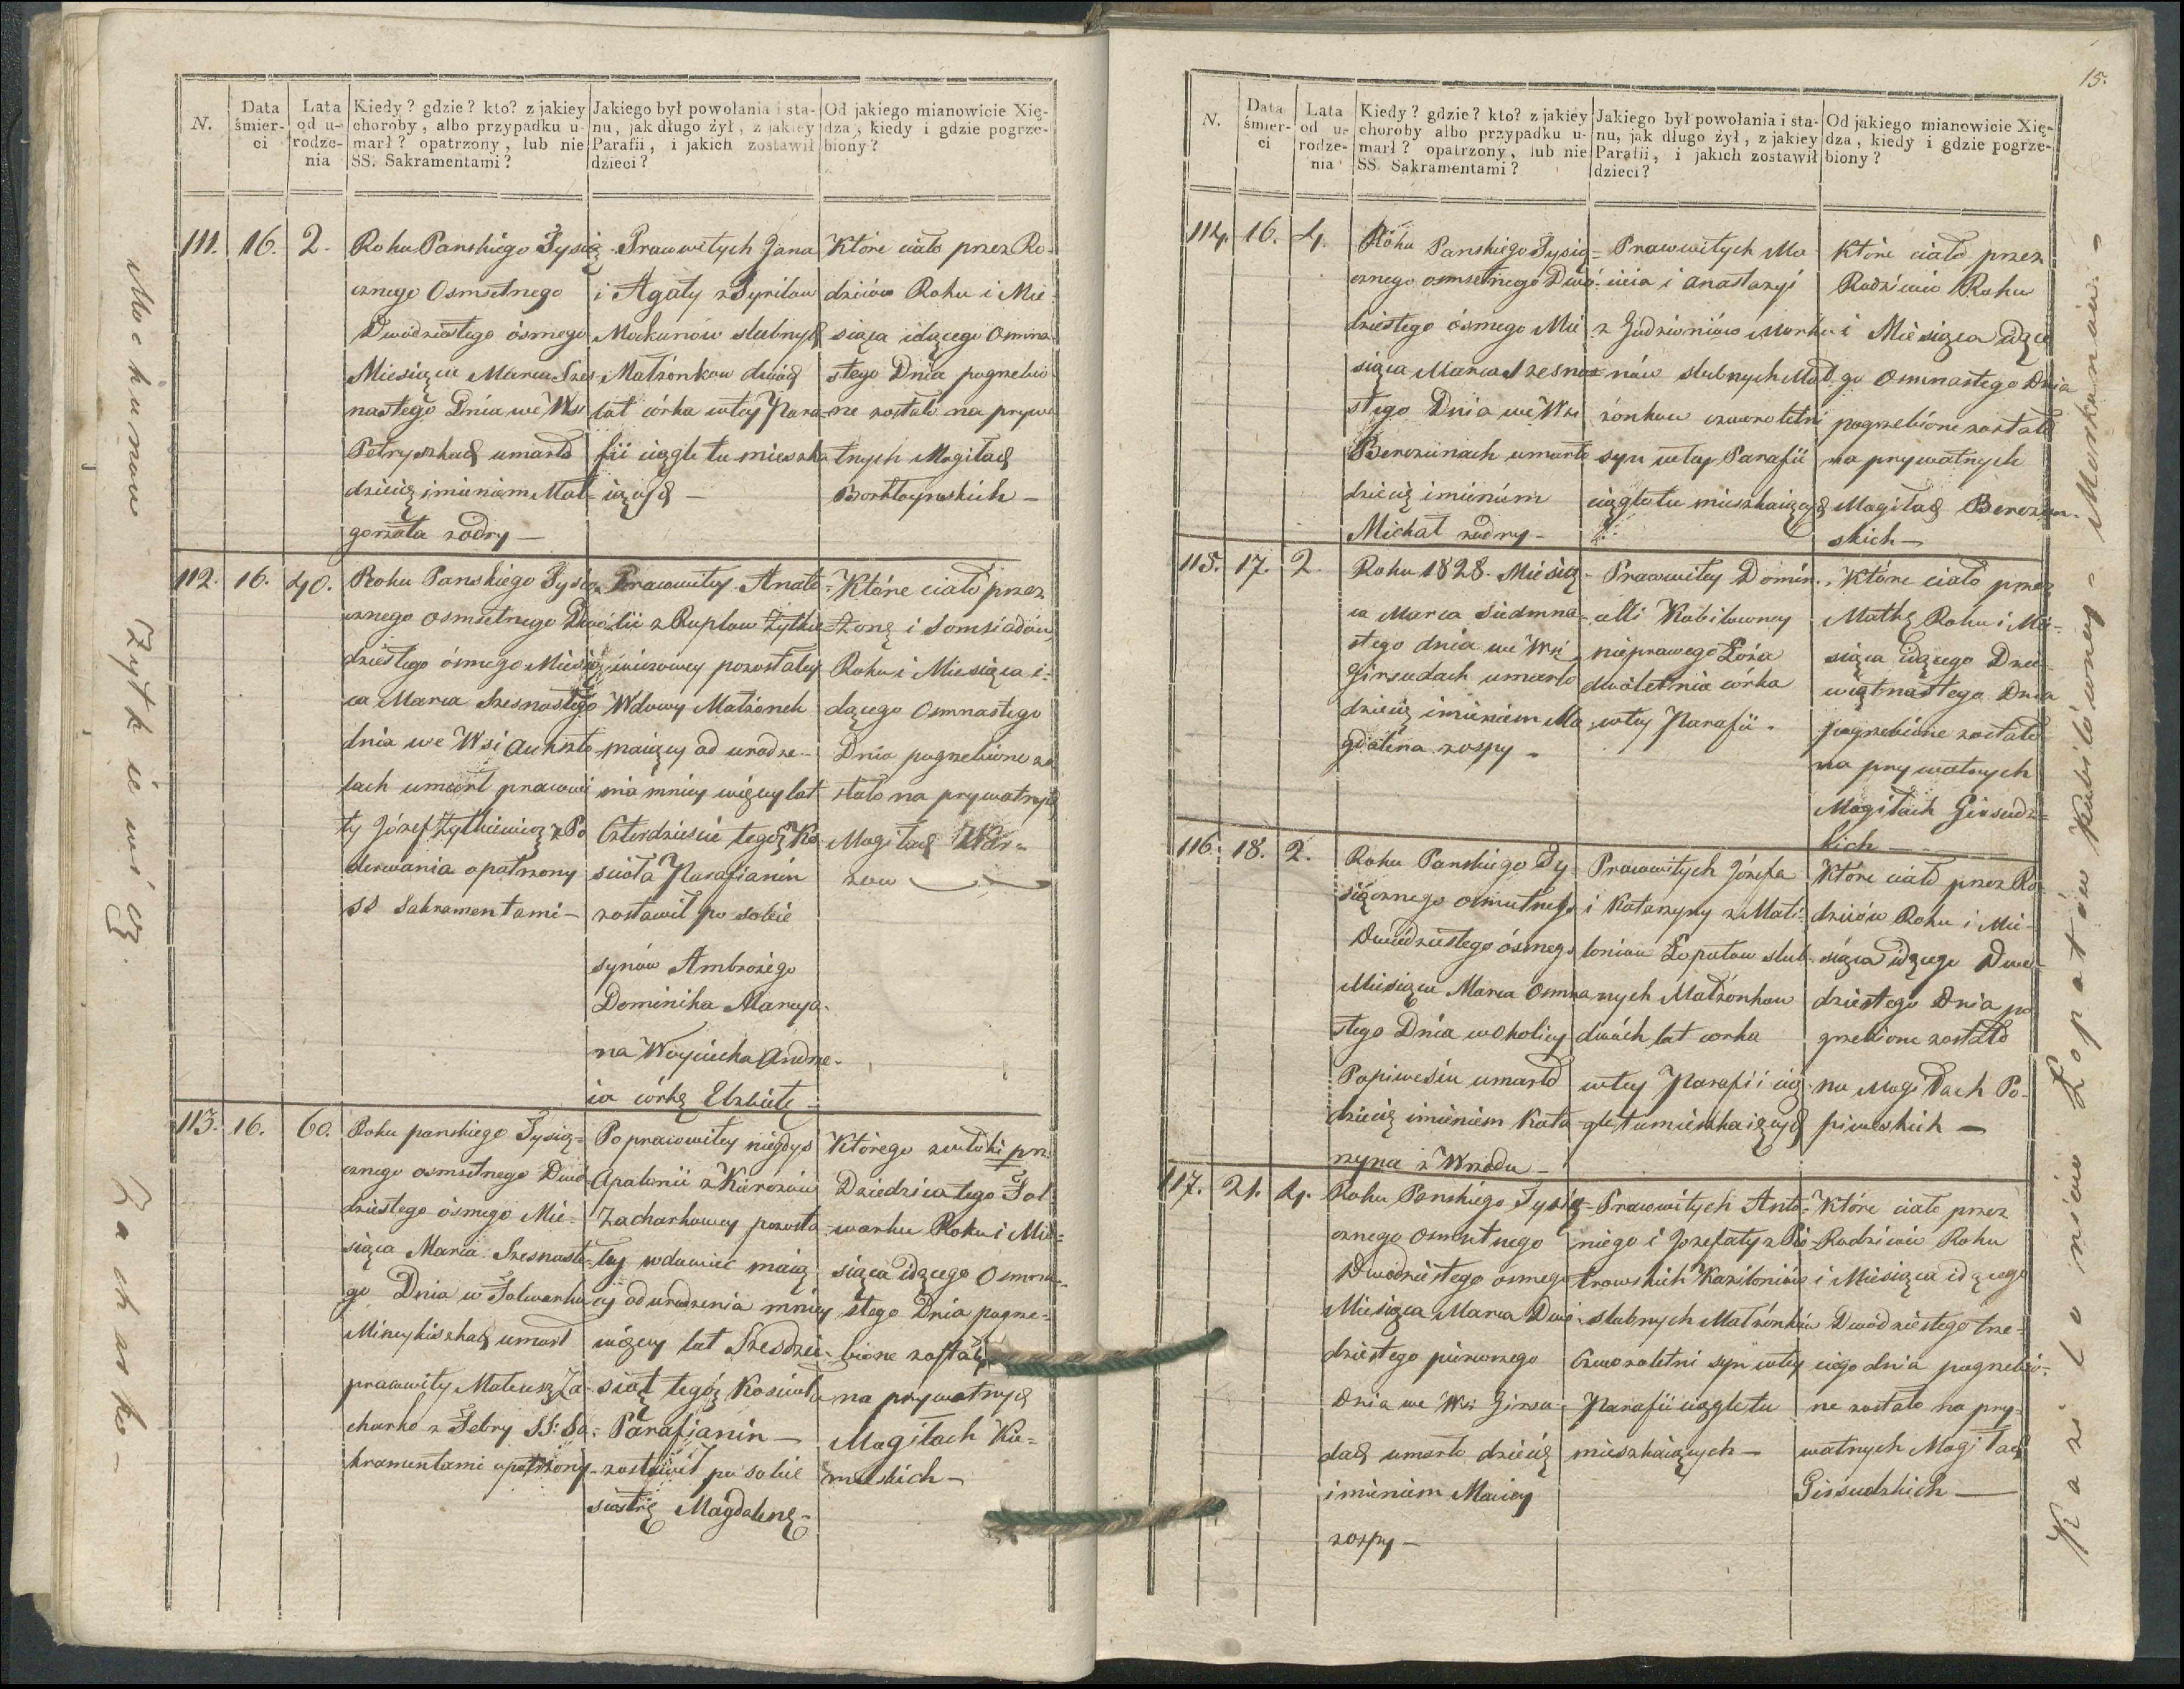 N.
Data śmier-ci
Lata od u-rodze-nia
Kiedy? gdzie? kto? z jakiey
choroby, albo przypadku u-
marł? opatrzony, lub nie
SS. Sakramentami?
Jakiego był powołania i sta-
nu, jak długo żył, z jakiey
Parafii, i jakich zostawił
dzieci?
Od jakiego mianowicie Xię-
dza, kiedy i gdzie pogrze-
biony?
111.
16.
2.
Roku Panskiego Tysią
cznego Osmsetnego
Dwódziestego ósmego
Miesiąca Marca Szes
nastego Dnia we Wsi
Petryszkach umarło
dziecię imieniem Mał
gorzata z odry —
Prawowitych Jana
i Agaty z
Mockunow slubnych
Małżonkow dwóch
lat córka wtey Para-
fii ciągle tu mieszka
iących —
Które ciało przez Ro-
dziców Roku i Mie-
siąca idącego Osmna
stego Dnia pogrzebio
ne zostało na prywa
tnych Mogiłach
112.
16.
40.
Roku Panskiego Tysią
cznego osmsetnego Dwó
dziestego ósmego Miesią
ca Marca Szesnastego
dnia we Wsi
umarł prawowi
ty Józef Żytkiewicz z Po
derwania opatrzony
SS Sakramentami —
Prawowitey Anato
lii z Rupłow Żytkie
wiczowey pozostałey
Wdowy Małżonek
maiący od urodze-
nia mniey więcey lat
Czterdzieście tegoż Ko
scioła Parafianin
zostawił po sobie
synów Ambrożego
Dominika Marcya-
na Woyciecha Andrze-
ia córkę Elzbietę —
Które ciało przez
Żonę i Somsiadów
Roku i Miesiąca i-
dącego Osmnastego
Dnia pogrzebione zo
stało na prywatnych
Mogiłach
113.
16.
60.
Roku panskiego Tysią-
cznego osmsetnego Dwó
dziestego ósmego Mie-
siąca Marca Szesnaste-
go Dnia w Folwarku
umarł
prawowity Mateusz Za
charko z Febry SS: Sa-
kramentami opatrzony —
Po prawowitey niegdys
Apolonii z
Zacharkowey pozosta
łey wdowiec maią
cy od urodzenia mniey
więcey lat Szesdzie-
siąt tegoż Koscioła
Parafianin —
zostawił po sobie
siostrę Magdalenę —
Którego zwłoki prz
Dziedzica tego Fol-
warku Roku i Mie-
siąca idącego Osmna-
stego Dnia pogrze-
bione zostały
na prywatnych
Mogiłach
Mockunow
Żytkiewicz.
Zacharko —
15.
N.
Data śmier-ci
Lata od u-rodze-nia
Kiedy? gdzie? kto? z jakiey
choroby albo przypadku u-
marł? opatrzony, lub nie
SS. Sakramentami?
Jakiego był powołania i sta-
nu, jak długo żył, z jakiey
Parafii, i jakich zostawił
dzieci?
Od jakiego mianowicie Xię-
dza, kiedy i gdzie pogrze-
biony?
114.
16.
4.
Roku Panskiego Tysią-
cznego osmsetnego Dwó-
dziestego ósmego Mie
siąca Marca Szesna
stego Dnia we Wsi
Berezunach umarło
dziecię imieniem
Michał z odry —
Prawowitych Ma
cieia i Anastazyi
z
slubnych Mał
żonkow czworoletni
syn wtey Parafii
ciągle tu mieszkaiących
Które ciało przez
Rodziców Roku
i Miesiąca idące
go Osmnastego Dnia
pogrzebione zostało
na prywatnych
Mogiłach Berezun-
skich —
115.
17.
2
Roku 1828. Miesią-
ca Marca siedmna-
stego dnia we Wsi
Girsudach umarło
dziecię imieniem Ma
gdalena z ospy —
Prawowitey Domin.
elli Kobilowney
nieprawego Łoża
dwóletnia córka
wtey Parafii.
Które ciało przez
Matkę Roku i Mie-
siąca idącego Dzie-
więtnastego Dnia
pogrzebione zostało
na prywatnych
Mogiłach Girsudz-
kich —
116.
18.
2.
Roku Panskiego Ty-
siącznego osmsetnego
Dwódziestego ósmego
Miesiąca Marca Osmna
stego Dnia w Okolicy
Popiwesiu umarło
dziecię imieniem Kata-
rzyna z Wrzodu —
Prawowitych Józefa
i Katarzyny z Mate-
loniow Łopatow slub-
nych Małżonkow
dwóch lat corka
wtey Parafii cią-
gle tu mieszkaiących
Które ciało przez Ro-
dziców Roku i Mie-
siąca idącego Dwó-
dziestego Dnia po
grzebione zostało
na Mogiłach Po-
piweskich —
117.
21.
4.
Roku Panskiego Tysią-
cznego Osmsetnego
Dwódziestego osmego
Miesiąca Marca Dwó-
dziestego pierwszego
Dnia we Wsi Girsu-
dach umarło dziecię
imieniem Maciey
z ospy —
Prawowitych Anto-
niego i Jozefaty z Pio-
trowskich Kaziloniów
slubnych Małżonków
Czworoletni syn wtey
Parafii ciągle tu
mieszkaiących —
Które ciało przez
Rodziców Roku
i Miesiąca idącego
Dwódziestego trze-
ciego dnia pogrzebio-
ne zostało na pry-
watnych Mogiłach
Girsudzkich —
Kaziloniow Łopatów Kobilówney — Morkunow —